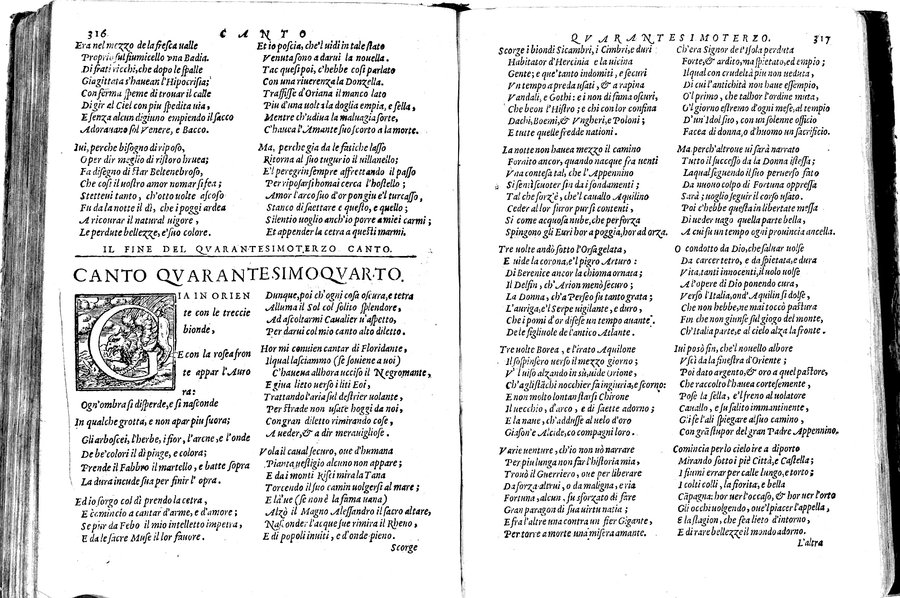 316 CANTO
Era nel mezzo de la fresca ualle
Proprio sul fiumicello una Badia.
Di frati ricchi, che dopo le spalle
Gia gittata s'hauean l'Hipocrisia;
Con ferma speme di trouar il calle
Di gir al Ciel con piu spedita uia,
E senza alcun digiuno empiendo il sacco
Adorauano sol Venere, e Bacco.
Iui, perche bisogno di riposo,
Oper dir meglio di ristoro hauea;
Fa disegno di star Beltenebroso,
Che cosi il nostro amor nomar si fea;
Stetteui tanto, ch'otto uolte ascoso
Fu da la notte il dì, che i poggi ardea
A ricourar il natural uigore,
Le perdute bellezze, e'l suo colore.
Et io poscia, che'l uidi in tale stato
Venuta sono a darui la nouella.
Tac questi poi, c'hebbe cosi parlato
Con una riuerenza la Donzella.
Trafisse d'Oriana il manco lato
Piu d'una uolta la doglia empia, e fella,
Mentre ch'udiua la maluagia sorte,
C'hauea l'Amante suo scorto a la morte.
Ma, perche gia de le fatiche lasso
Ritorna al suo tugurio il uillanello;
E'l peregrin sempre affrettando il passo
Per riposarsi homai cerca l'hostello;
Amor l'arco suo d'or pon giu e'l turcasso,
Stanco di saettare e questo, e quello;
Silentio uoglio anch'io porre a miei carmi;
Et appender la cetra a questi marmi.
IL FINE DEL QVARANTESIMOTERZO CANTO.
CANTO QVARANTESIMOQVARTO.
GIA IN ORIEN
te con le treccie
bionde,
E con la rosea fron
te appar l'Auro
ra:
Ogn'ombra si disperde, e si nasconde
In qualche grotta, e non apar piu fuora;
Gli arboscei, l'herbe, i fior, l'arene, e l'onde
De be'colori il dì pinge, e colora;
Prende il Fabbro il martello, e batte sopra
La dura incude sua per finir l'opra.
Ed io sorgo col dì prendo la cetra,
E comincio a cantar d'arme, e d'amore;
Se pur da Febo il mio intelletto impetra,
E da le sacre Muse il lor fauore.
Dunque, poi ch'ogni cosa oscura, e tetra
Alluma il Sol col solito splendore,
Ad ascoltarmi Caualier u'aspetto,
Per darui col mio canto alto diletto.
Hor mi conuien cantar di Floridante,
Ilqual lasciammo (se souiene a uoi)
C'haueua allhora ucciso il Negromante,
E giua lieto uerso i liti Eoi,
Trattando l'aria sul destrier uolante,
Per strade non usate hoggi da noi,
Con gran diletto rimirando cose,
A ueder, & a dir merauigliose.
Vola il caual securo, oue d'humana
Pianta uestigio alcuno non appare;
E da i monti Rifei mira la Tana
Torcendo il suo camin uolgersi al mare;
E là'ue (se non è la fama uana)
Alzò il Magno Alessandro il sacro altare,
Nasconder l'acque sue rimira il Rheno,
E di popoli inuiti, e d'onde pieno.
Scorge
QVARANTESIMOTERZO. 317
Scorge i biondi Sicambri, i Cimbri, e duri
Habitator d'Hercinia e la uicina
Gente; e que'tanto indomiti, e securi
Vn tempo a preda usati, & a rapina
Vandali, e Gothi: e i non di fama oscuri,
Che beon l'Histro; e chi con lor confina
Dachi, Boemi, & Vngheri, e Poloni;
E tutte quelle fredde nationi.
La notte non hauea mezzo il camino
Fornito ancor, quando nacque fra uenti
Vna contesa tal, che l'Appennino
Si sentì scuoter sin da i fondamenti;
Tal che forz'è, che'l cauallo Aquilino
Ceder al lor furor pur si contenti,
Si come acqua o nube, che per forza
Spingono gli Euri hor a poggia, hor ad orza.
Tre uolte andò sotto l'Orsa gelata,
E uide la corona, e'l pigro Arturo:
Di Berenice ancor la chioma ornata;
Il Delfin, ch'Arion menò securo;
La Donna, ch'a Perseo fu tanto grata;
L'auriga, e'l Serpe uigilante, e duro,
Che i pomi d'or difese un tempo auante
De le figliuole de l'antico Atlante.
Tre uolte Borea, e l'irato Aquilone
Il sospinsero uerso il mezzo giorno;
V'l uiso alzando in sù, uide Orione,
Ch'a gli stāchi nocchier fa ingiuria, e scorno:
E non molto lontan starsi Chirone
Il uecchio, d'arco, e di saette adorno;
E la naue, ch'addusse al uelo d'oro
Giason'e Alcide, co compagni loro.
Varie uenture, ch'io non uò narrare
Per piu lunga non far l'historia mia,
Trouò il Guerriero, oue per liberare
Da forza altrui, o da maligna, e ria
Fortuna, alcun, fu sforzato di fare
Gran paragon di sua uirtu natia;
E fra l'altre una contra un fier Gigante,
Per torre a morte una misera amante.
Ch'era Signor de l'Isola perduta
Forte, & ardito, ma spietato, ed empio;
Ilqual con crudeltà piu non ueduta,
Di cui l'antichità non haue essempio,
O'l primo, che talhor l'ordine muta,
O'l giorno estremo d'ogni mese, al tempio
D'un'Idol suo, con un solenne officio
Facea di donna, o d'huomo un sacrificio.
Ma, perch'altroue ui sarà narrato
Tutto il successo da la Donna istessa;
Laqual seguendo il suo peruerso fato
Da nuouo colpo di Fortuna oppressa
Sarà; uoglio seguir il corso usato.
Poi c'hebbe questa in libertate messa
Di ueder uago quella parte bella,
A cui fu un tempo ogni prouincia ancella.
O condotto da Dio, che saluar uolse
Da carcer tetro, e da spietata, e dura
Vita, tanti innocenti, il uolo uolse
A l'opere di Dio ponendo cura,
Verso l'Italia, ond'Aquilin si dolse,
Che non hebbe, ne mai toccò pastura
Fin che non giunse sul giogo del monte,
Ch'Italia parte, e al cielo alza la fronte.
Iui posò fin, che'l nouello albore
Vscì da la finestra d'Oriente;
Poi dato argento, & oro a quel pastore,
Che raccolto l'hauea cortesemente,
Pose la sella, e'l freno al uolatore
Cauallo, e su salito immantinente,
Gli fe l'ali spiegare al suo camino,
Con grā stupor del gran Padre Appennino.
Comincia per lo cielo ire a diporto
Mirando sotto i piè Città, e Castella;
I fiumi errar per calle lungo, e torto;
I colti colli, la fiorita, e bella
Cāpagna: hor uer l'occaso, & hor uer l'orto
Gli occhi uolgendo, oue'l piacer l'appella,
E la stagion, che fea lieto d'intorno,
E di rare bellezze il mondo adorno.
L'altra